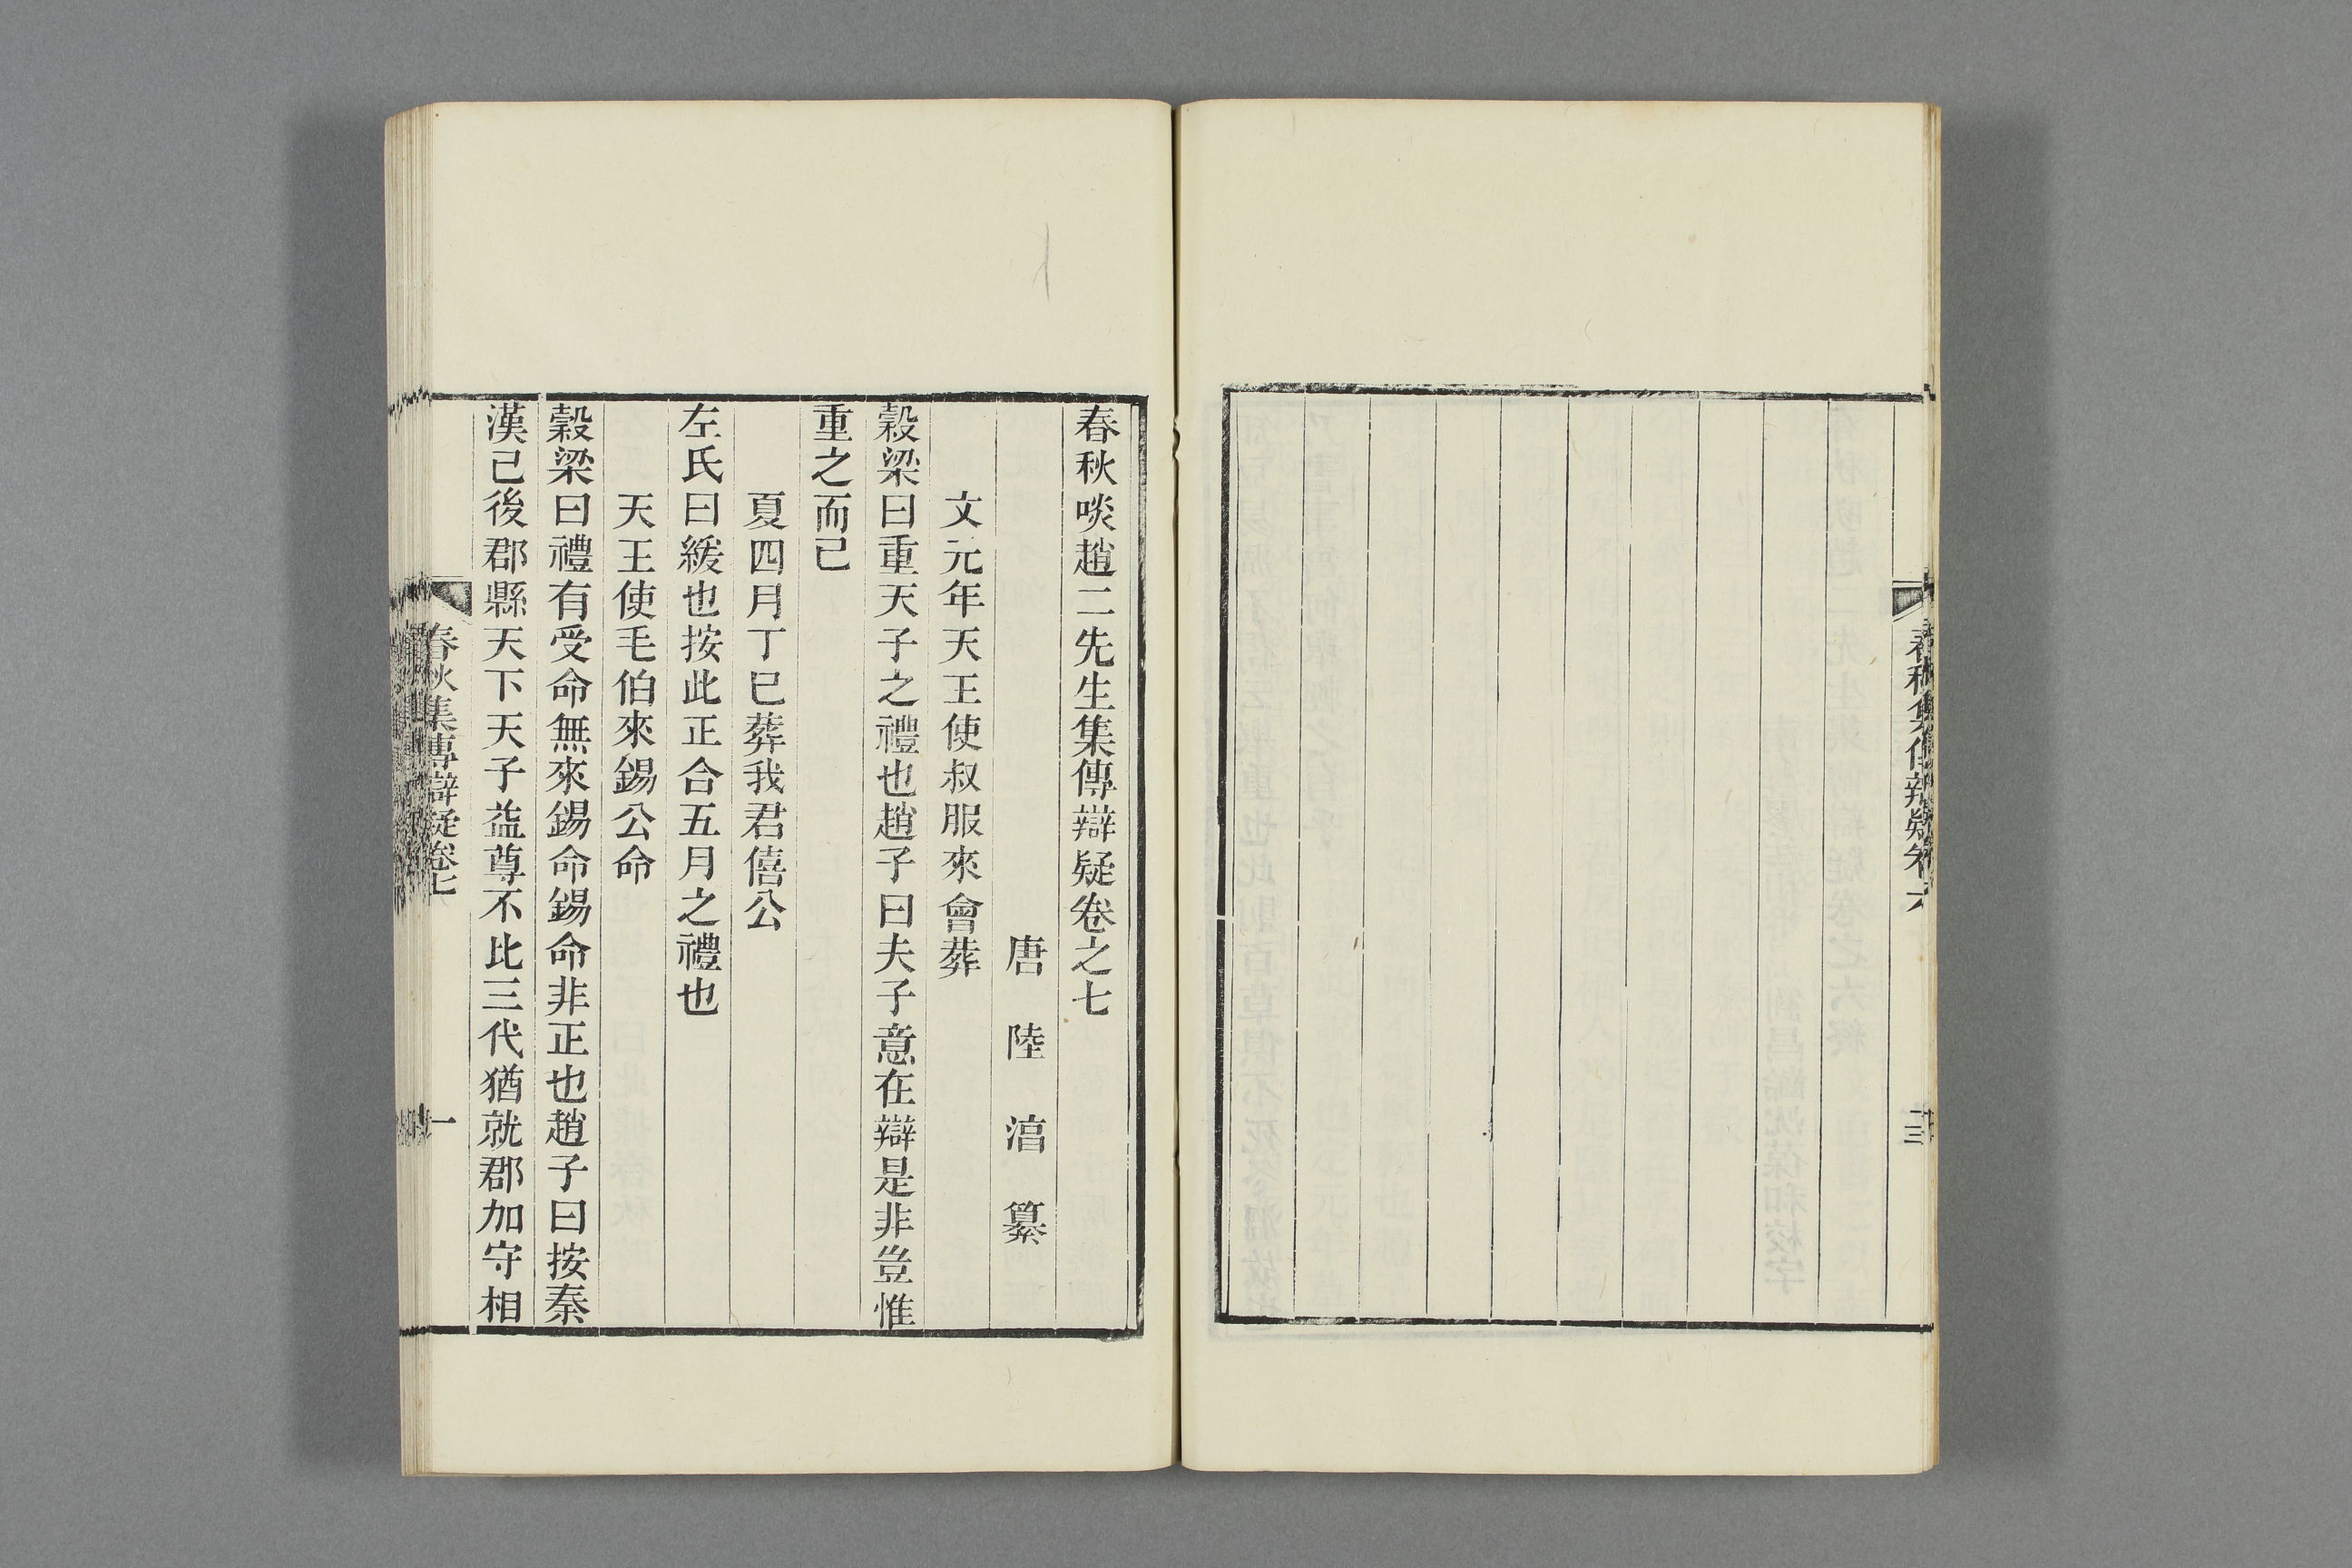 春秋集傳辯疑卷六
春秋啖趙二先生集傳辯疑卷之七
唐陸淳纂
文元年天王使叔服來會葬
穀梁曰重天子之禮也趙子曰夫子意在辯是非豈惟
重之而已
夏四月丁巳葬我君僖公
左氏曰緩也按此正合五月之禮也
天王使毛伯來錫公命
穀梁曰禮有受命無來錫命錫命非正也趙子曰按秦
漢已後郡縣天下天子益尊不比三代猶就郡加守相
春秋集傳辯疑卷七
一